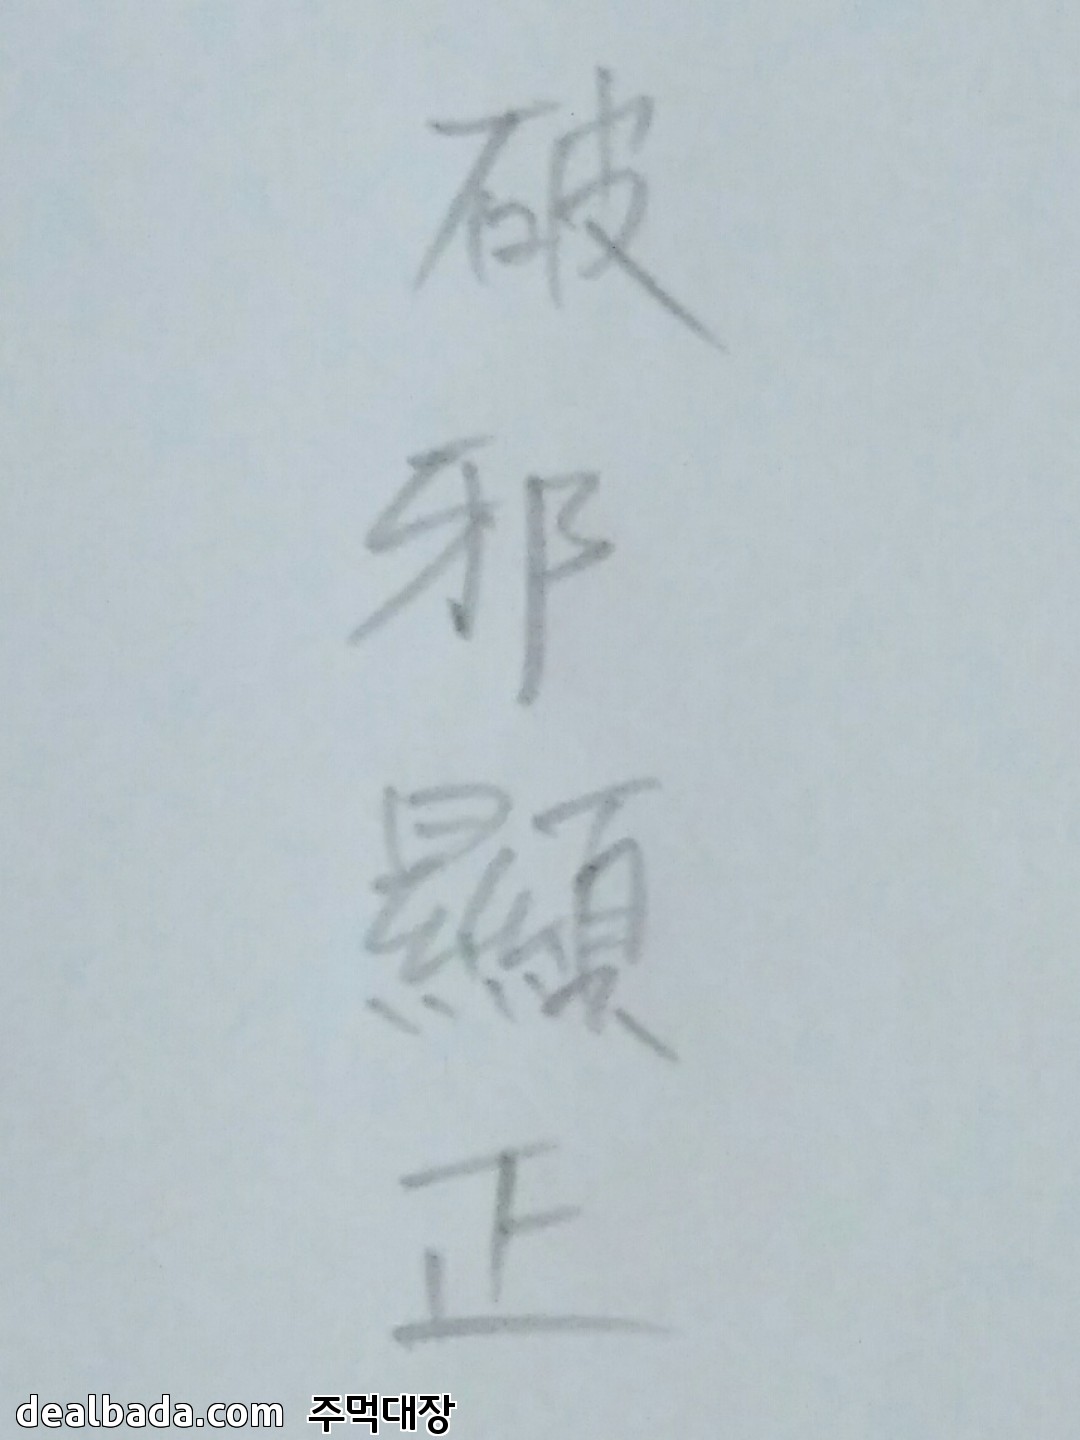 破
邪
顯
正
dealbada.com 주먹대장